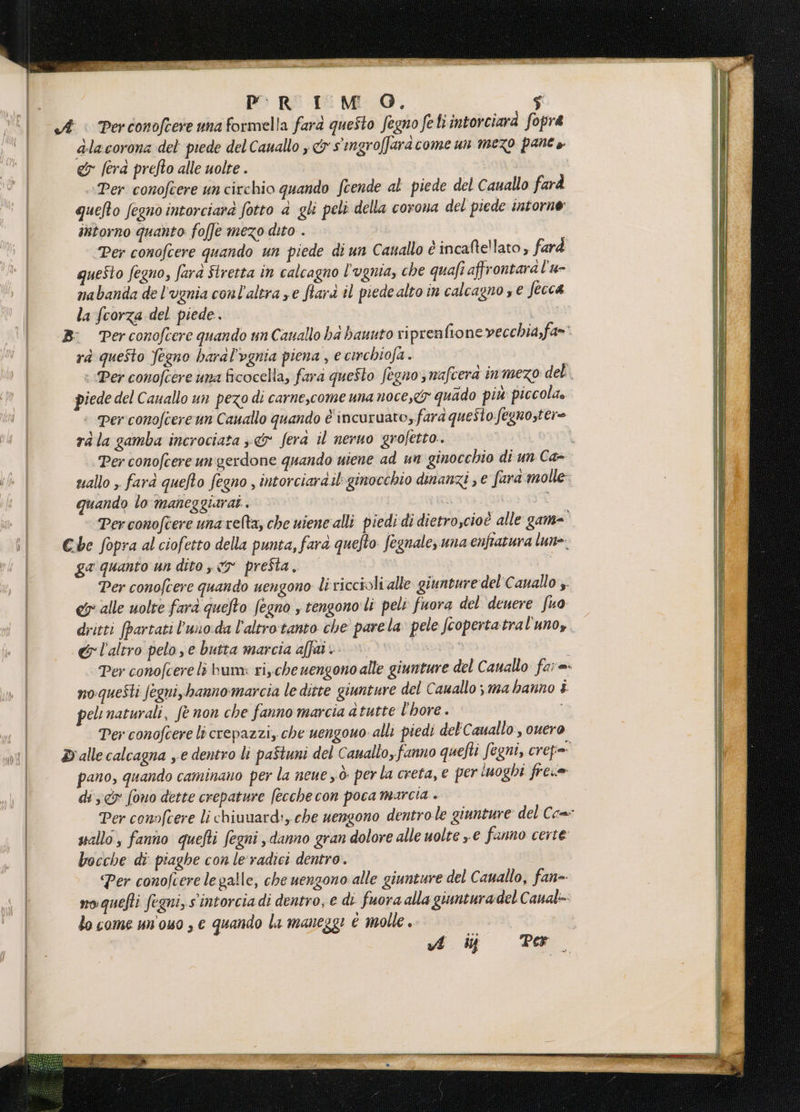 PRIMO. 5
A Per conoſcere una formella farà queſto ſegno ſe li intorciarà ſopra
à la corona del piede del Cauallo, & s'ingroſſarà come un mezo pane,
& ſerà preſto alle uolte.
Per conoſcere un circhio quando ſcende al piede del Cauallo farà
queſto ſegno intorciarà ſotto à gli peli della corona del piede intorno
intorno quanto foſſe mezo dito.
Per conoſcere quando un piede di un Cauallo è incaſtellato, farà
queſto ſegno, ſarà ſtretta in calcagno l'vgnia, che quaſi affrontarà l'u-
nabanda de l'vgnia con l'altra, e ſtarà il piede alto in calcagno, e ſecca
la ſcorza del piede.
B Per conoſcere quando un Cauallo hà hauuto riprenſione vecchia, fa-
rà queſto ſegno harà l'vgnia piena, e circhioſa.
Per conoſcere una ficocella, farà queſto ſegno, naſcerà in mezo del
piede del Cauallo un pezo di carne, come una noce, & quãdo più piccola.
Per conoſcere un Cauallo quando è incuruato, farà queſto ſegno, te-
rà la gamba incrociata, & ſerà il neruo groſetto.
Per conoſcere un gerdone quando uiene ad un ginocchio di un Ca-
uallo, farà queſto ſegno, intorciarà il ginocchio dinanzi, e ſarà molle
quando lo maneggiarai.
Per conoſcere una reſta, che uiene alli piedi di dietro, cioè alle gam-
C be ſopra al ciofetto della punta, farà queſto ſegnale, una enfiatura lun-
ga quanto un dito, & preſta.
Per conoſcere quando uengono li riccioli alle giunture del Cauallo,
& alle uolte farà queſto ſegno, tengono li peli fuora del deuere ſuo
dritti ſpartati l'uno da l'altro tanto che pare la pele ſcoperta tra l'uno,
& l'altro pelo, e butta marcia aſſai.
Per conoſcere li humori, che uengono alle giunture del Cauallo fare-
no queſti ſegni, hanno marcia le ditte giunture del Cauallo, ma hanno i
peli naturali, ſe non che fanno marcia à tutte l'hore.
Per conoſcere li crepazzi, che uengono alli piedi del Cauallo, ouero
D alle calcagna, e dentro li paſtuni del Cauallo, fanno queſti ſegni, crepa-
pano, quando caminano per la neue, ò per la creta, e per luoghi frede
di, & ſono dette crepature ſecche con poca marcia.
Per conoſcere li chiuuardi, che uengono dentro le giunture del Ca-
uallo, fanno queſti ſegni, danno gran dolore alle uolte, e fanno certe
bocche di piaghe con le radici dentro.
Per conoſcere le galle, che uengono alle giunture del Cauallo, fan-
no queſti ſegni, s'intorcia di dentro, e di fuora alla giuntura del Caual-
lo come un'ouo, e quando la maneggi è molle.
A iij Per